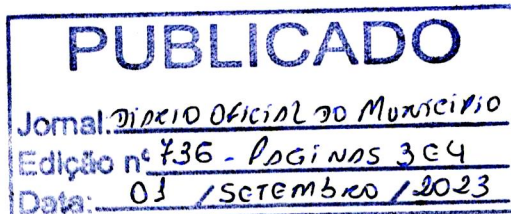 PUBLICADO
Jornal: DIARIO OFICIAL DO MUNICIPIO
Edição nº 736 - PAGINAS 3 E 4
Data: 01 / SETEMBRO / 2023